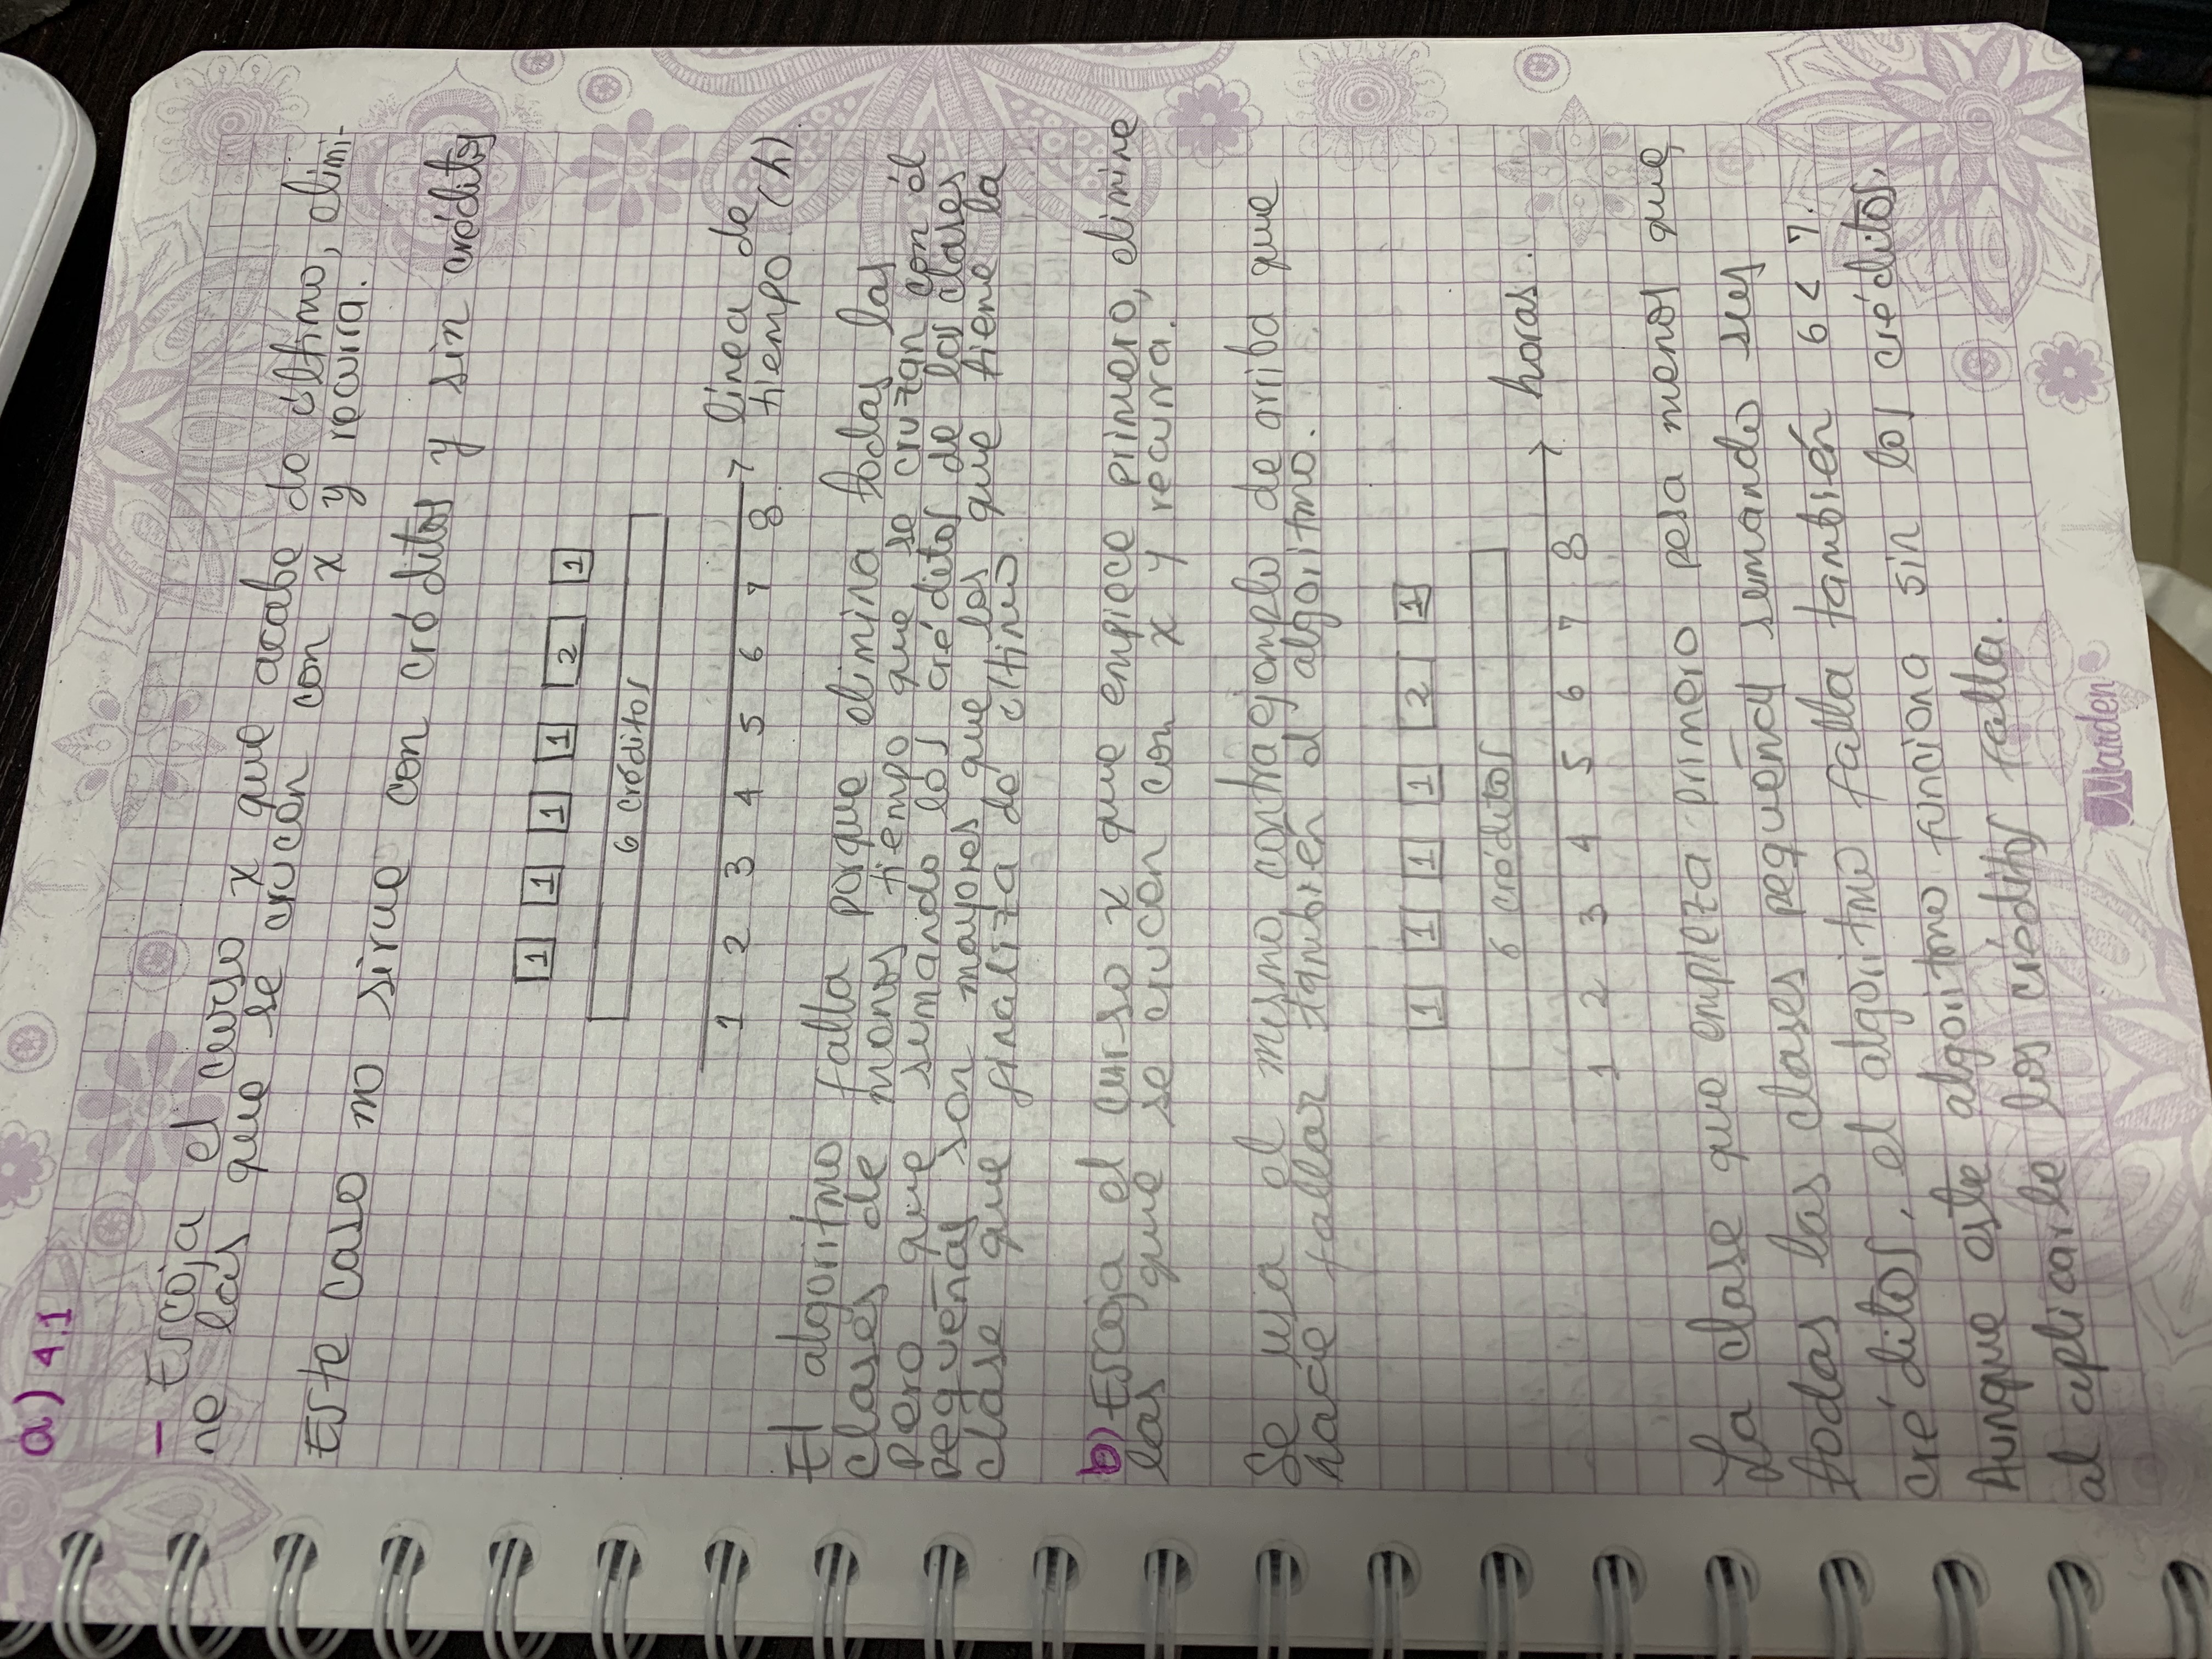 a) 4.1
- Escoja el curso x que acabe de último, elimi-
ne las que se crucen con x y recurra.
Este caso no sirve con créditos y sin créditos
1 1 1 1 2 1
6 créditos
1 2 3 4 5 6 7 8
línea de
tiempo (h).
El algoritmo falla porque elimina todas las
clases de menos tiempo que se cruzan con él
pero que sumando los créditos de las clases
pequeñas son mayores que los que tiene la
clase que finaliza de último.
b) Escoja el curso x que empiece primero, elimine
las que se crucen con x y recurra.
Se usa el mismo contraejemplo de arriba que
hace fallar también el algoritmo.
1 1 1 1 2 1
6 créditos
horas.
1 2 3 4 5 6 7 8
La clase que empieza primero pesa menos que
todas las clases pequeñas sumando sus
créditos, el algoritmo falla también 6 < 7.
Aunque este algoritmo funciona sin los créditos,
al aplicarle los créditos falla.
Marden